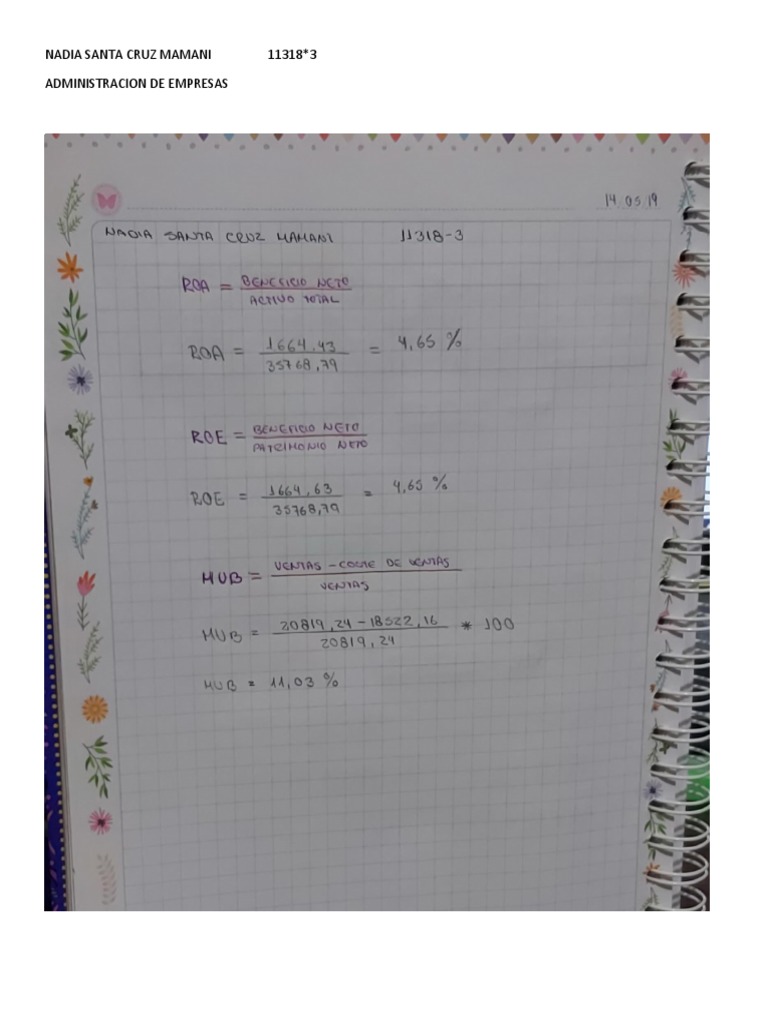 NADIA SANTA CRUZ MAMANI 11318*3
ADMINISTRACION DE EMPRESAS
14.05.19
NADIA SANTA CRUZ MAMANI 11318-3
ROA = BENEFICIO NETO
ACTIVO TOTAL
ROA = 1664,43 = 4,65 %
35768,79
ROE = BENEFICIO NETO
PATRIMONIO NETO
ROE = 1664,63 = 4,65 %
35768,79
MUB = VENTAS - COSTE DE VENTAS
VENTAS
MUB = 20819,24 - 18522,16 * 100
20819,24
MUB = 11,03 %